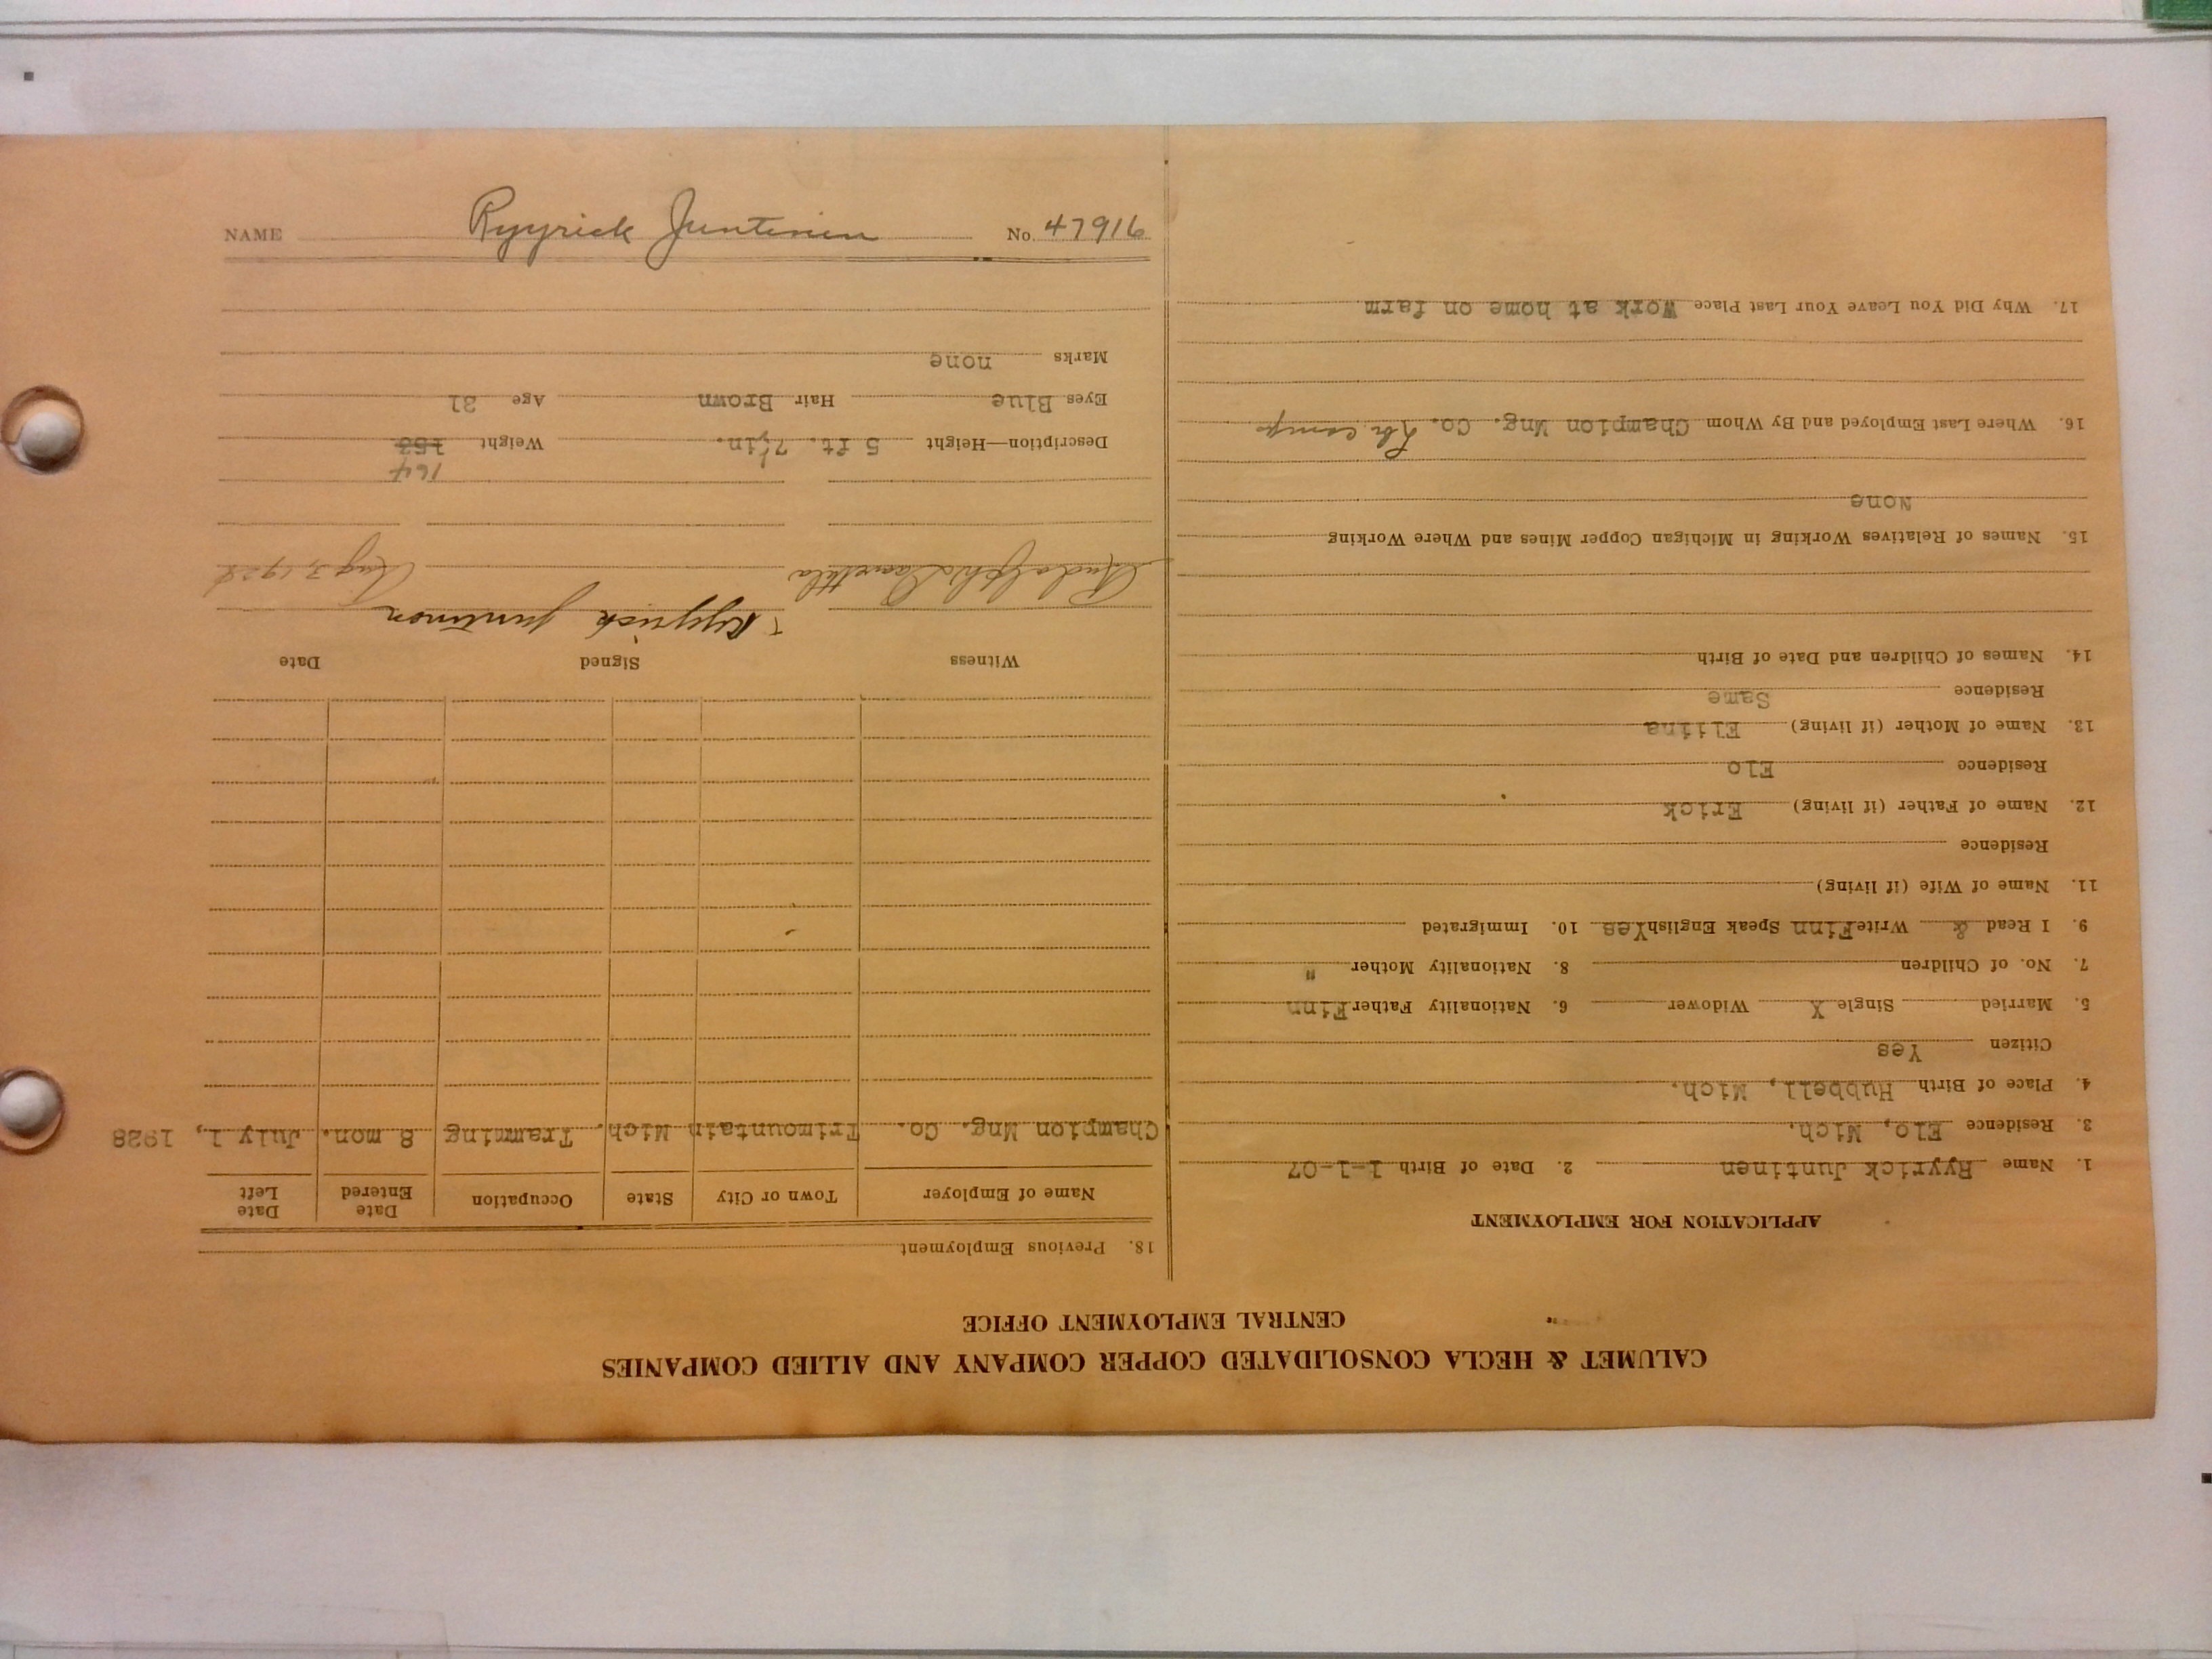 NAME Ryyrick Juntinen No. 47916
CALUMET & HECLA CONSOLIDATED COPPER COMPANY AND ALLIED COMPANIES
CENTRAL EMPLOYMENT OFFICE
APPLICATION FOR EMPLOYMENT
1. Name Ryyrick Juntinen 2. Date of Birth 1-1-07
3. Residence Elo, Mich.
4. Place of Birth Hubbell, Mich.
Citizen Yes
5. Married Single X Widower 6. Nationality Father Finn
7. No. of Children 8. Nationality Mother "
9. I Read & Write Finn Speak English Yes 10. Immigrated
11. Name of Wife (if living)
Residence
12. Name of Father (if living) Erick
Residence Elo
13. Name of Mother (if living) Eliina
Residence Same
14. Names of Children and Date of Birth
15. Names of Relatives Working in Michigan Copper Mines and Where Working
None
16. Where Last Employed and By Whom Champion Mng. Co.
17. Why Did You Leave Your Last Place Work at home on farm
18. Previous Employment
Name of Employer Town or City State Occupation Date Entered Date Left
Champion Mng. Co. Trimountain Mich. Tramming 8 mon. July 1, 1928
Witness Signed Date
Ryyrick Juntinen
Rudolph Aug 3 1928
164
Description—Height 5 ft. 7 in. Weight 153
Eyes Blue Hair Brown Age 21
Marks none